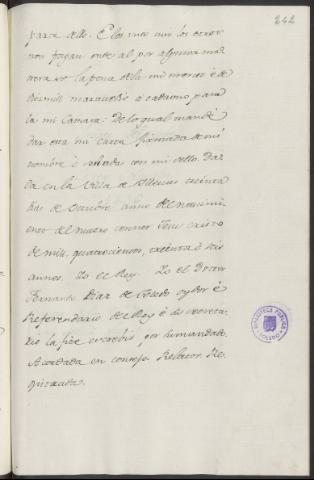 242
parte dello. E los unos nin los otros
non fagan ende al por alguna ma
nera so la pena dela mi merced è de
diezmill maravedis à cada uno para
la mi Camara: Delo qual mandè
dar esta mi Carta firmada de mi
nombre è sellada con mi sello. Da
da en la Villa de Yllescas treinta
dias de Octubre anno del nascimi
ento del nuestro sennor Jesu cristo
de mill, quatrocientos, treinta è seis
annos. Yo el Rey. Yo el Doctor
Fernando Diaz de Toledo oydor è
Referendario del Rey è su secreta
rio la fize escrebir por su mandado.
Acordada en consejo. Relator. Re
gistrada.
BIBLIOTECA PUBLICA
TOLEDO